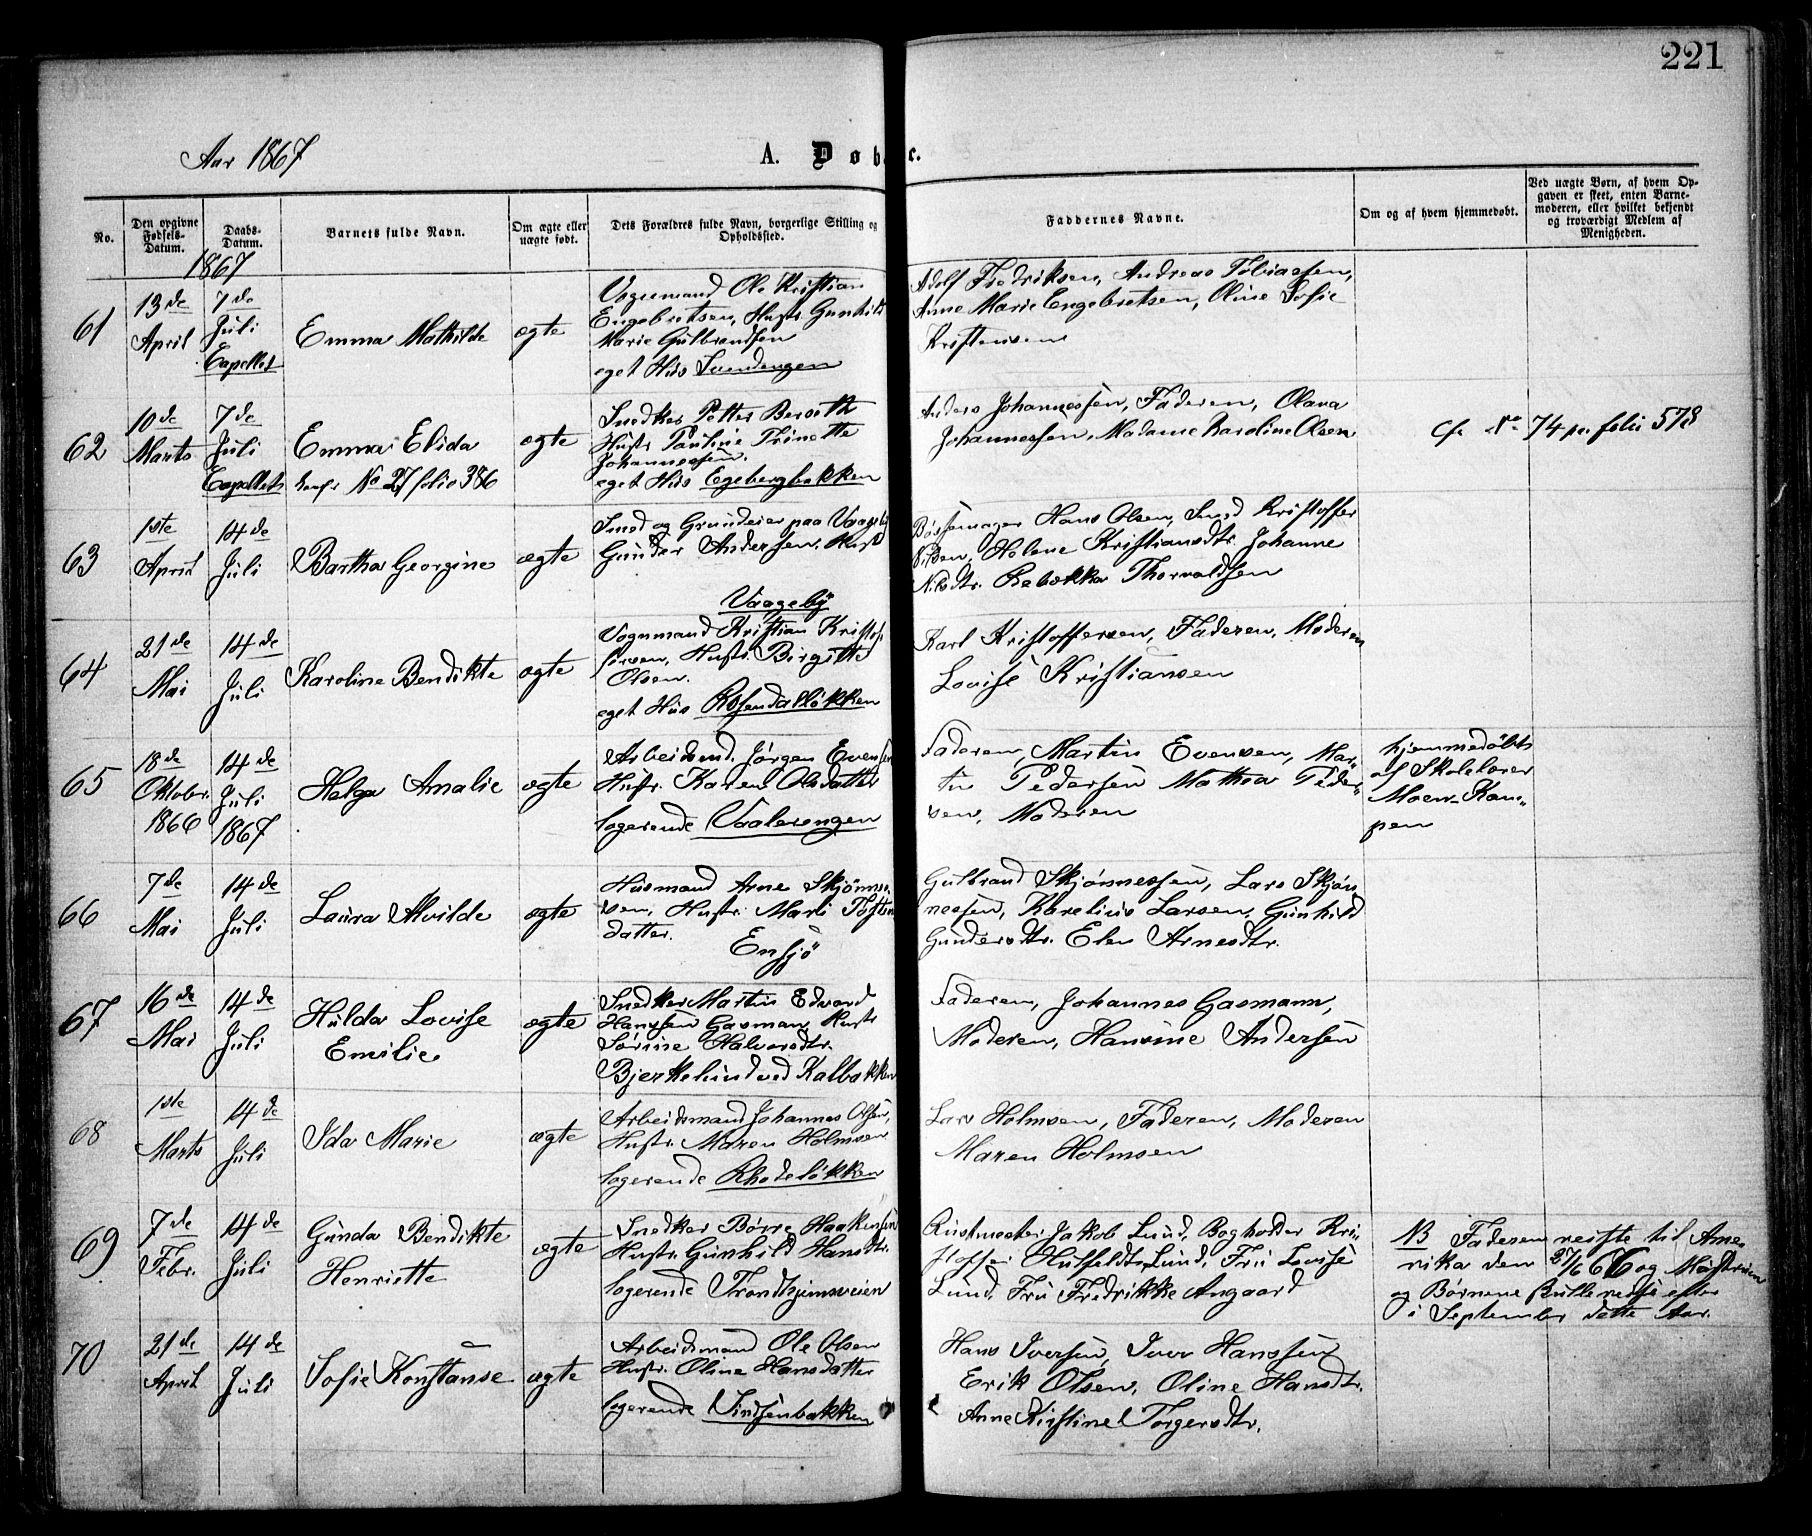 221
Aar 1867
A. Døbte.
No.
Den opgivne Fødsels-Datum.
Daabs-Datum.
Barnets fulde Navn.
Om ægte eller uægte født.
Dets Forældres fulde Navn, borgerlige Stilling og Opholdssted.
Faddernes Navne.
Om og af hvem hjemmedøbt.
Ved uægte Børn, af hvem Opgaven er skeet, enten Barnemoderen, eller hvilket bekjendt og troværdigt Medlem af Menigheden.
1867
61
13de April
7de Juli Capellet
Emma Mathilde
ægte
Vognmand Ole Kristian
Engebretsen, Hustr. Gunhild
Marie Gulbrandsen
eget Hus Svendengen
Adolf Fredriksen, Andreas Tobiassen,
Anne Marie Engebretsen, Oline Sofie
Kristensen
62
10de Marts
7de Juli Capellet
Emma Elida
No 27 folio 386
ægte
Snedker Petter
Hustr. Pauline Trinette
Johannessen.
eget Hus Egebergbakken
Anders Johannessen, Faderen, Olava
Johannessen, Madame Karoline Olsen
Cfr No 74 pa folio 578
63
1ste April
14de Juli
Bartha Georgine
ægte
Smed og Grundeier paa Vaageby
Gunder Andersen, Hustr
Vaageby
Bøssemager Hans Olsen, Smed Kristoffer
Nilsen, Helene Kristiansdtr. Johanne
Nilsdtr. Rebekka Thorvaldsen
64
21de Mai
14de Juli
Karoline Bendikte
ægte
Vognmand Kristian Kristof-
fersen, Hustr. Birgitte
Olsen.
eget Hus Rosendalløkken
Karl Kristoffersen, Faderen, Moderen
Lovise Kristiansen
65
18de Oktobr. 1866
14de Juli 1867
Helga Amalie
ægte
Arbeidsmd. Jørgen Evensen
Hustr. Karen Olsdatter
logerende Vaalerengen
Faderen, Martin Evensen, Mar-
tin Pedersen Mathea Peder-
sen, Moderen
hjemmedøbt
af Skolelærer
Moen - Kam-
pen
66
7de Mai
14de Juli
Laura Alvilde
ægte
Husmand Arne Skjønnes-
sen, Hustr. Marli Tosten
datter.
Ensjø
Gulbrand Skjønnessen, Lars Skjøn
nessen, Karelius Larsen, Gunhild
Gundersdtr. Elen Arnesdtr.
67
16de Mai
14de Juli
Hulda Lovise
Emilie
ægte
Snedker Martin Edvard
Hanssen Gasman, Hustr
Sørine Halvorsdtr.
Bjerkelund ved Kalbakken
Faderen, Johannes Gasmann,
Moderen, Hansine Andersen
68
1ste Marts
14de Juli
Ida Marie
ægte
Arbeidsmand Johannes Olsen,
Hustr. Maren Holmsen
logerende Rhodeløkken
Lars Holmsen, Faderen, Moderen
Maren Holmsen
69
7de Febr.
14de Juli
Gunda Bendikte
Henriette
ægte
Snedker Børre Haakensen
Hustr. Gunhild Hansdtr.
logerende Trondhjemsveien
Rustmester Jakob Lund, Bogholder Kri-
stoffer Hulfeldt Lund, Fru Lovise
Lund, Fru Fredrikke Angaard
NB Faderen reiste til Ame-
rika den 66 og Mo
og Børnene efter
i September dette Aar.
70
21de April
14de Juli
Sofie Konstanse
ægte
Arbeidsmand Ole Olsen
Hustr. Oline Hansdatter
logerende Simsenbakken
Hans Iversen, Iver Hanssen
Erik Olsen, Oline Hansdtr.
Anne Kirstine Torgersdtr.